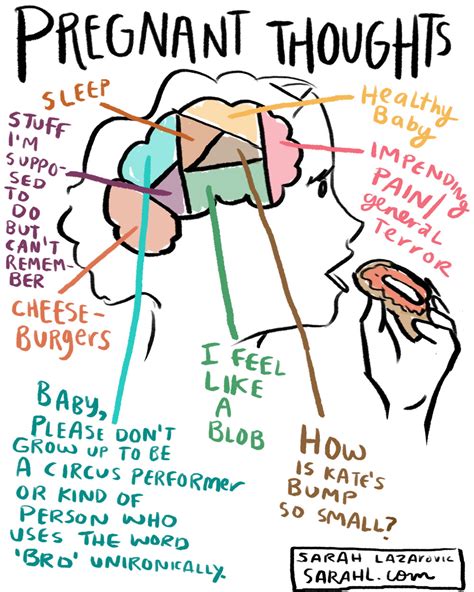 PREGNANT THOUGHTS
SLEEP
HEALTHY
BABY
STUFF
I'M
SUPPO-
SED
TO
DO
BUT
CAN'T
REMEM-
BER
IMPENDING
PAIN/
general
TERROR
CHEESE-
BURgERS
I FEEL
LIKE
A
BLOB
BABY,
PLEASE DON'T
GROW UP TO BE
A CIRCUS PERFORMER
OR KIND OF
PERSON WHO
USES THE WORD
'BRO' UNIRONICALLY.
HOW
IS KATE'S
BUMP
SO SMALL?
SARAH LAZAROVIC
SARAHL.com